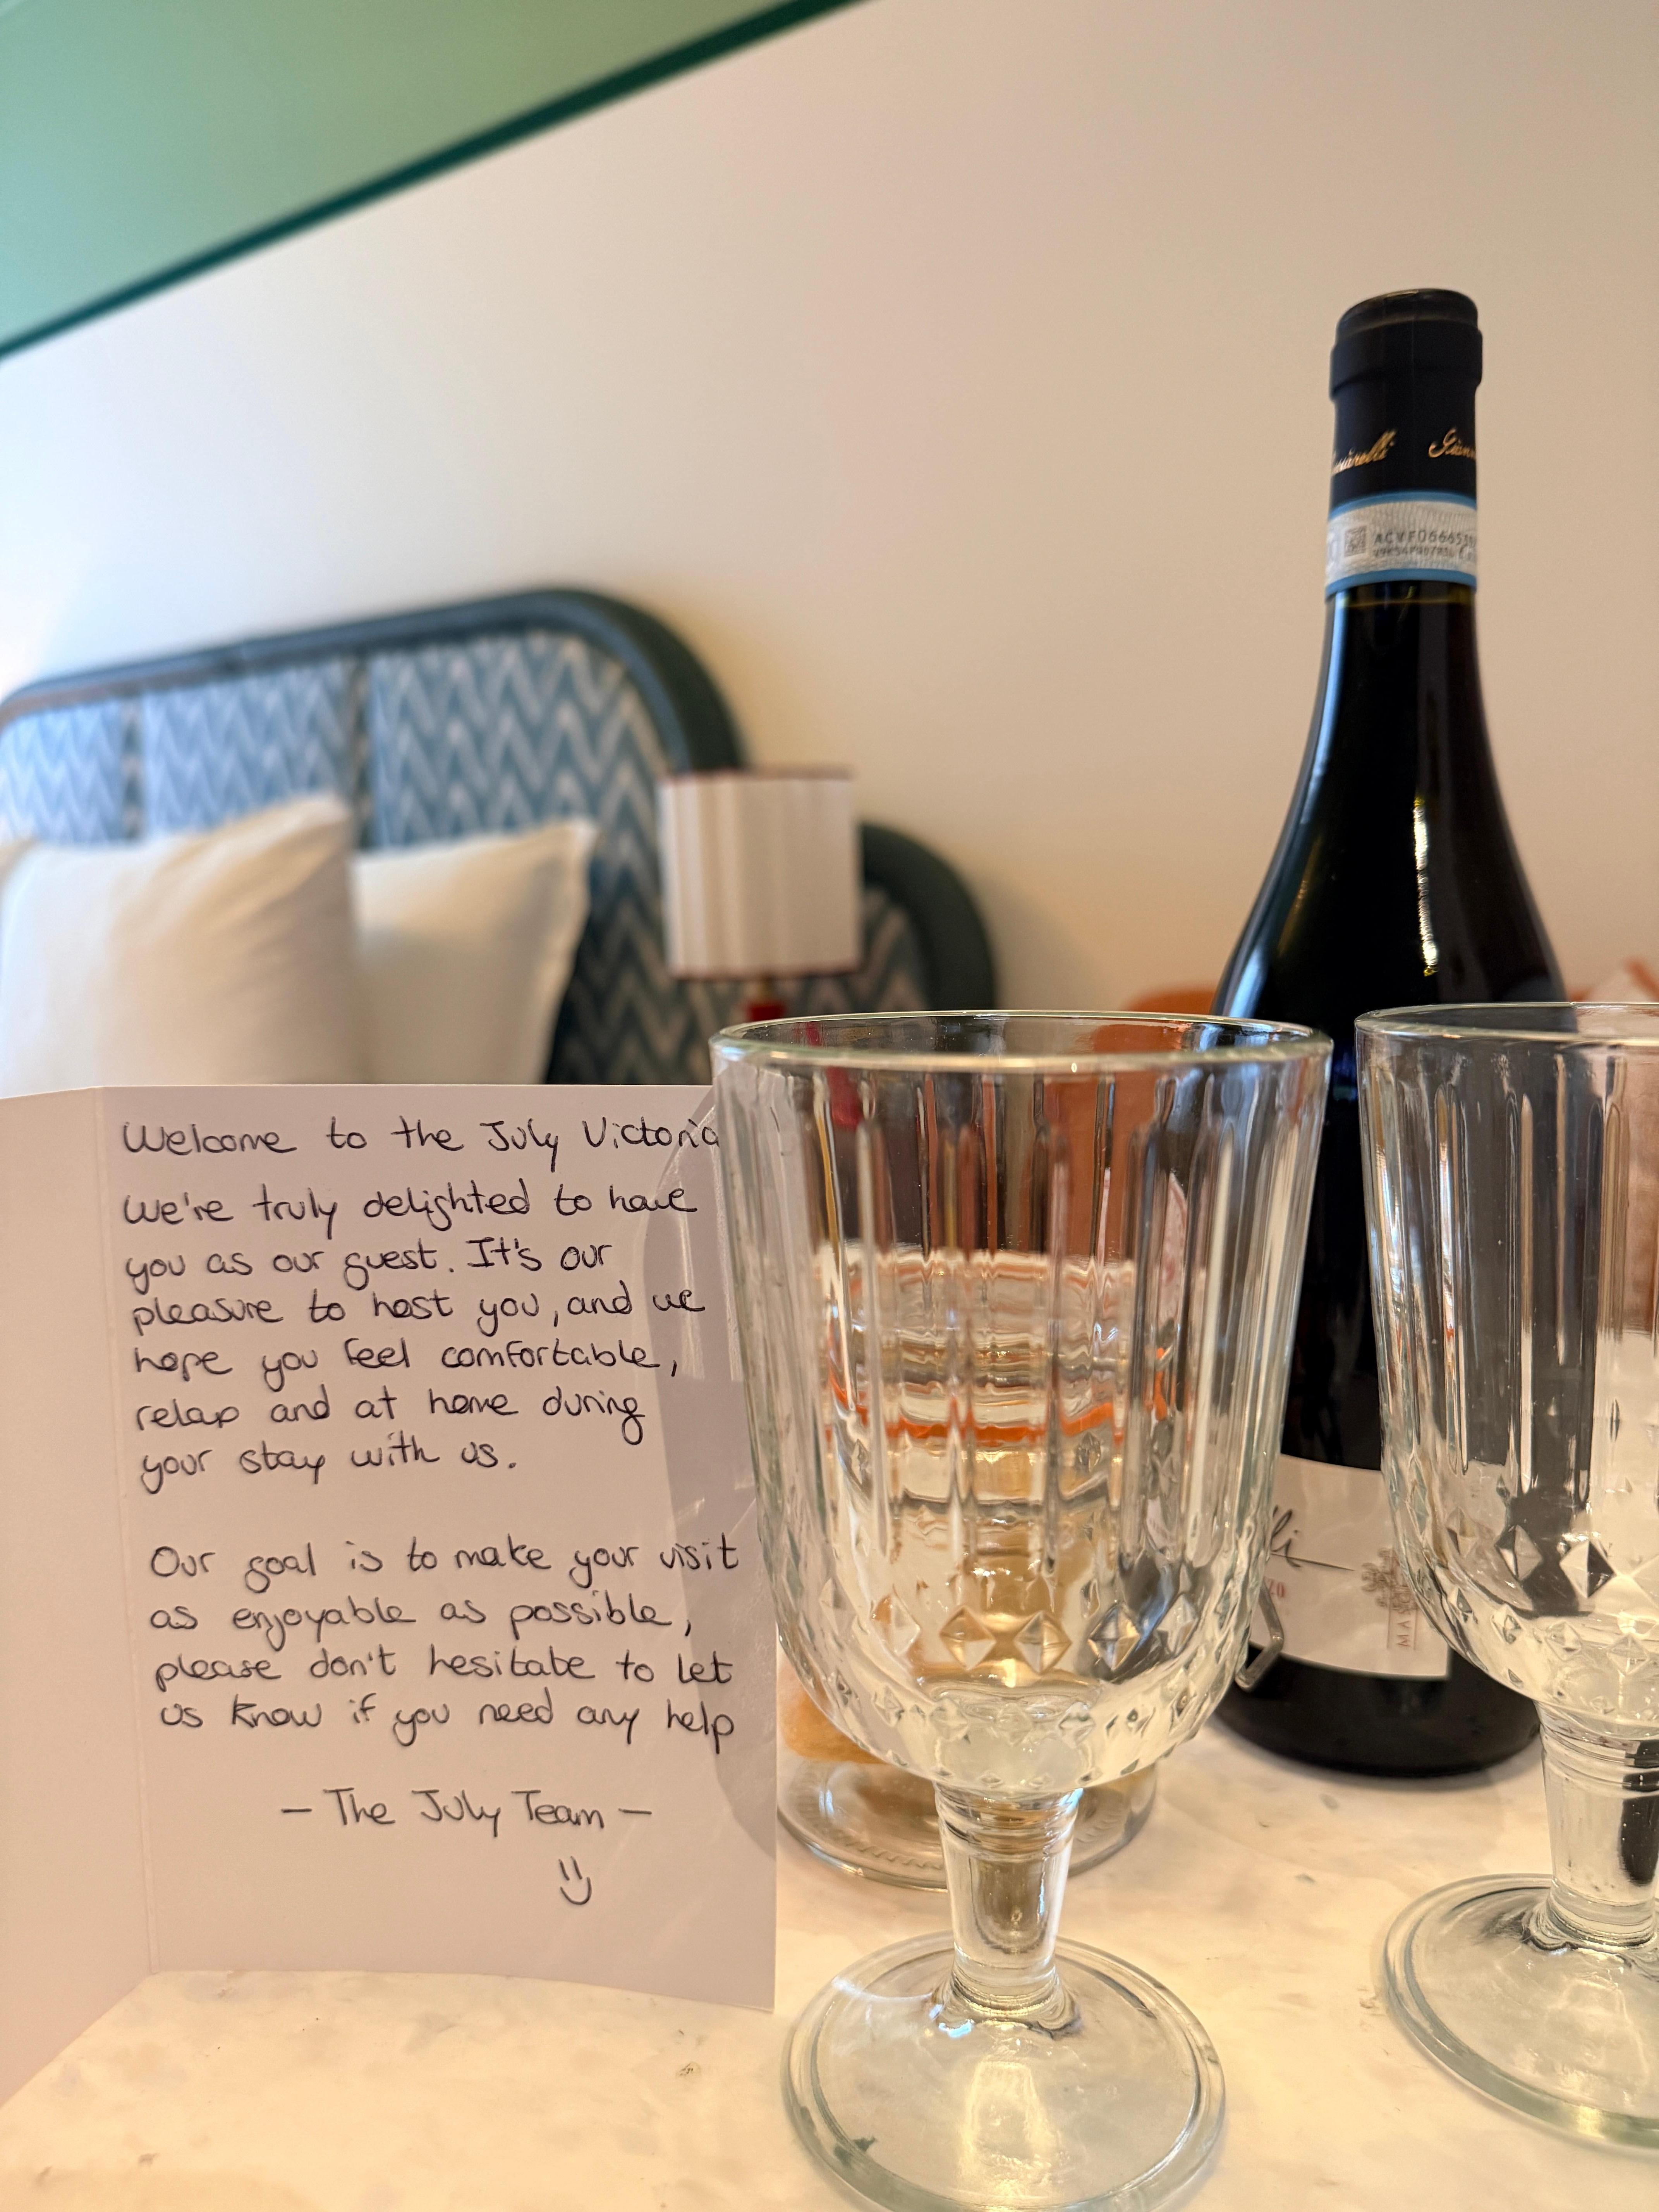 Welcome to the July Victoria
We're truly delighted to have
you as our guest. It's our
pleasure to host you, and we
hope you feel comfortable,
relax and at home during
your stay with us.
Our goal is to make your visit
as enjoyable as possible,
please don't hesitate to let
us know if you need any help
— The July Team —